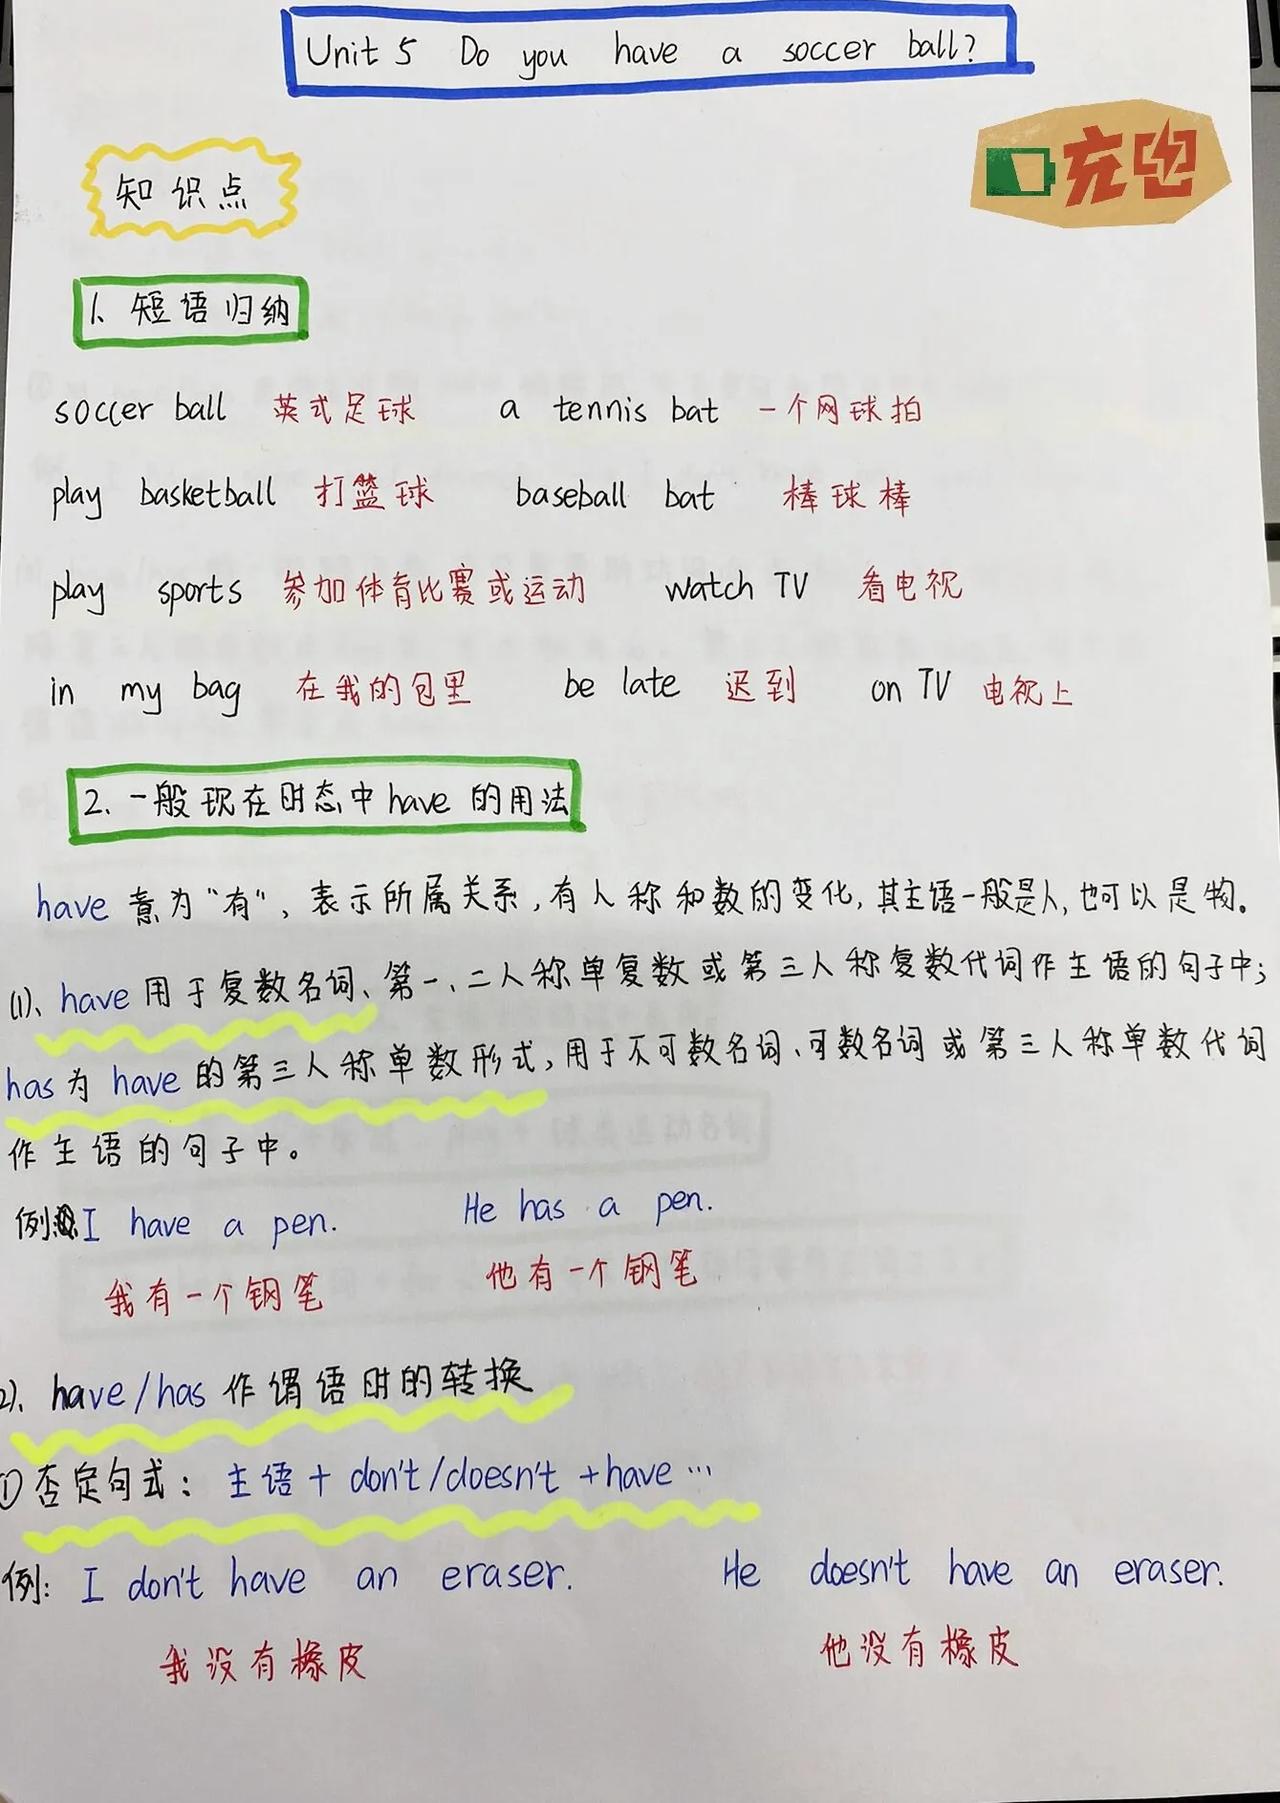 Unit 5 Do you have a soccer ball?
充电
知识点
1、短语归纳
soccer ball 英式足球 a tennis bat 一个网球拍
play basketball 打篮球 baseball bat 棒球棒
play sports 参加体育比赛或运动 watch TV 看电视
in my bag 在我的包里 be late 迟到 on TV 电视上
2、一般现在时态中have的用法
have意为“有”，表示所属关系,有人称和数的变化,其主语一般是人,也可以是物。
(1)、have用于复数名词、第一、二人称单复数或第三人称复数代词作主语的句子中;
has为have的第三人称单数形式,用于不可数名词、可数名词或第三人称单数代词
作主语的句子中。
例: I have a pen. He has a pen.
我有一个钢笔 他有一个钢笔
2)、have/has作谓语时的转换
①否定句式: 主语+don't/doesn't+have…
例: I don't have an eraser. He doesn't have an eraser.
我没有橡皮 他没有橡皮